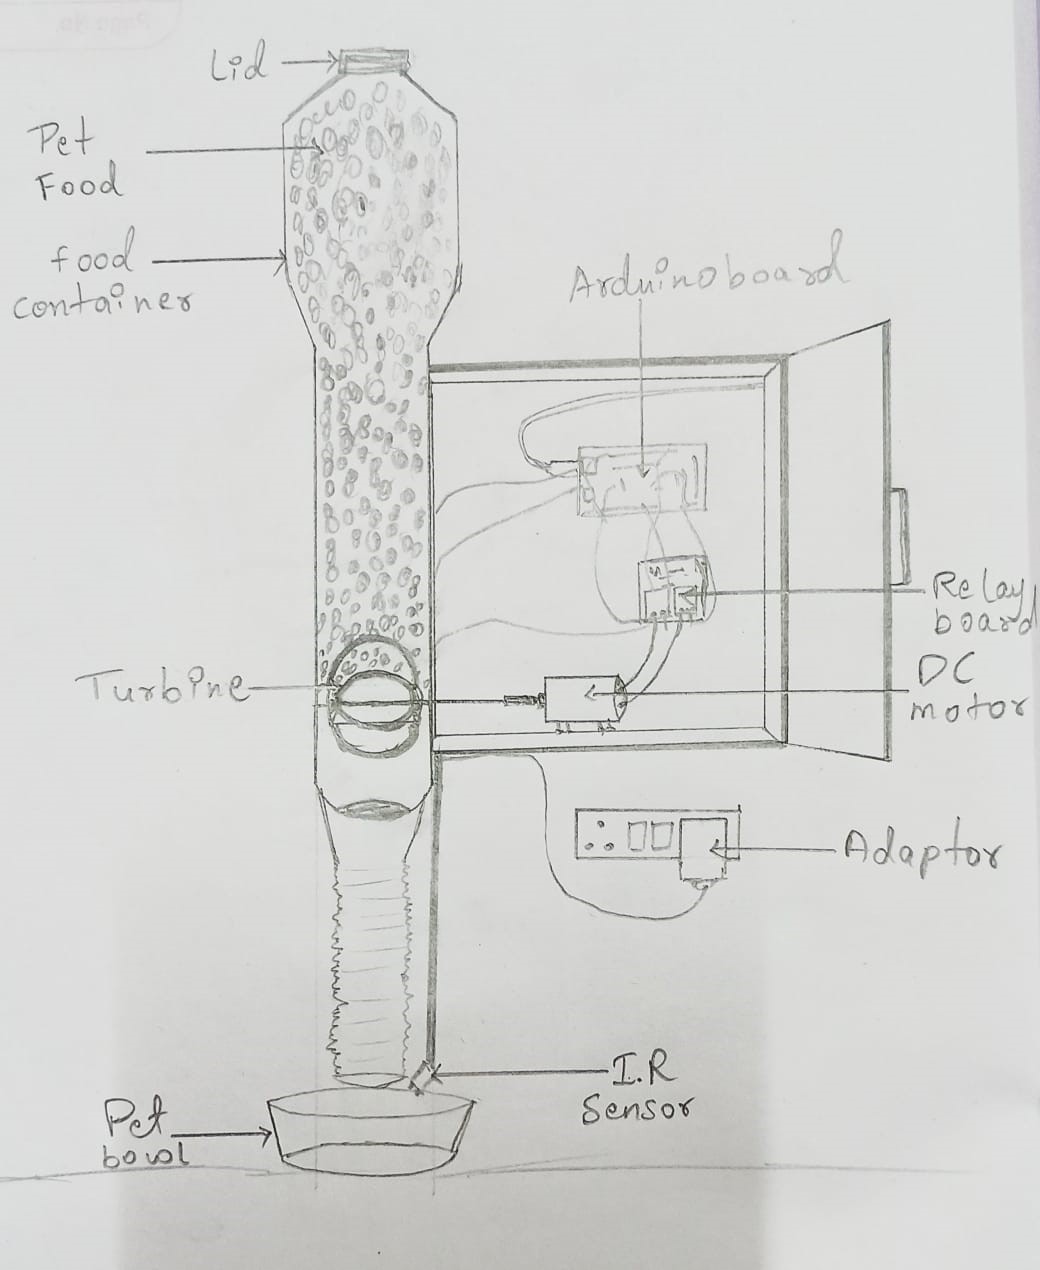 Lid
Pet
Food
food
container
Arduino board
Relay
board
Turbine
DC
motor
Adaptor
I.R
Sensor
Pet
bowl